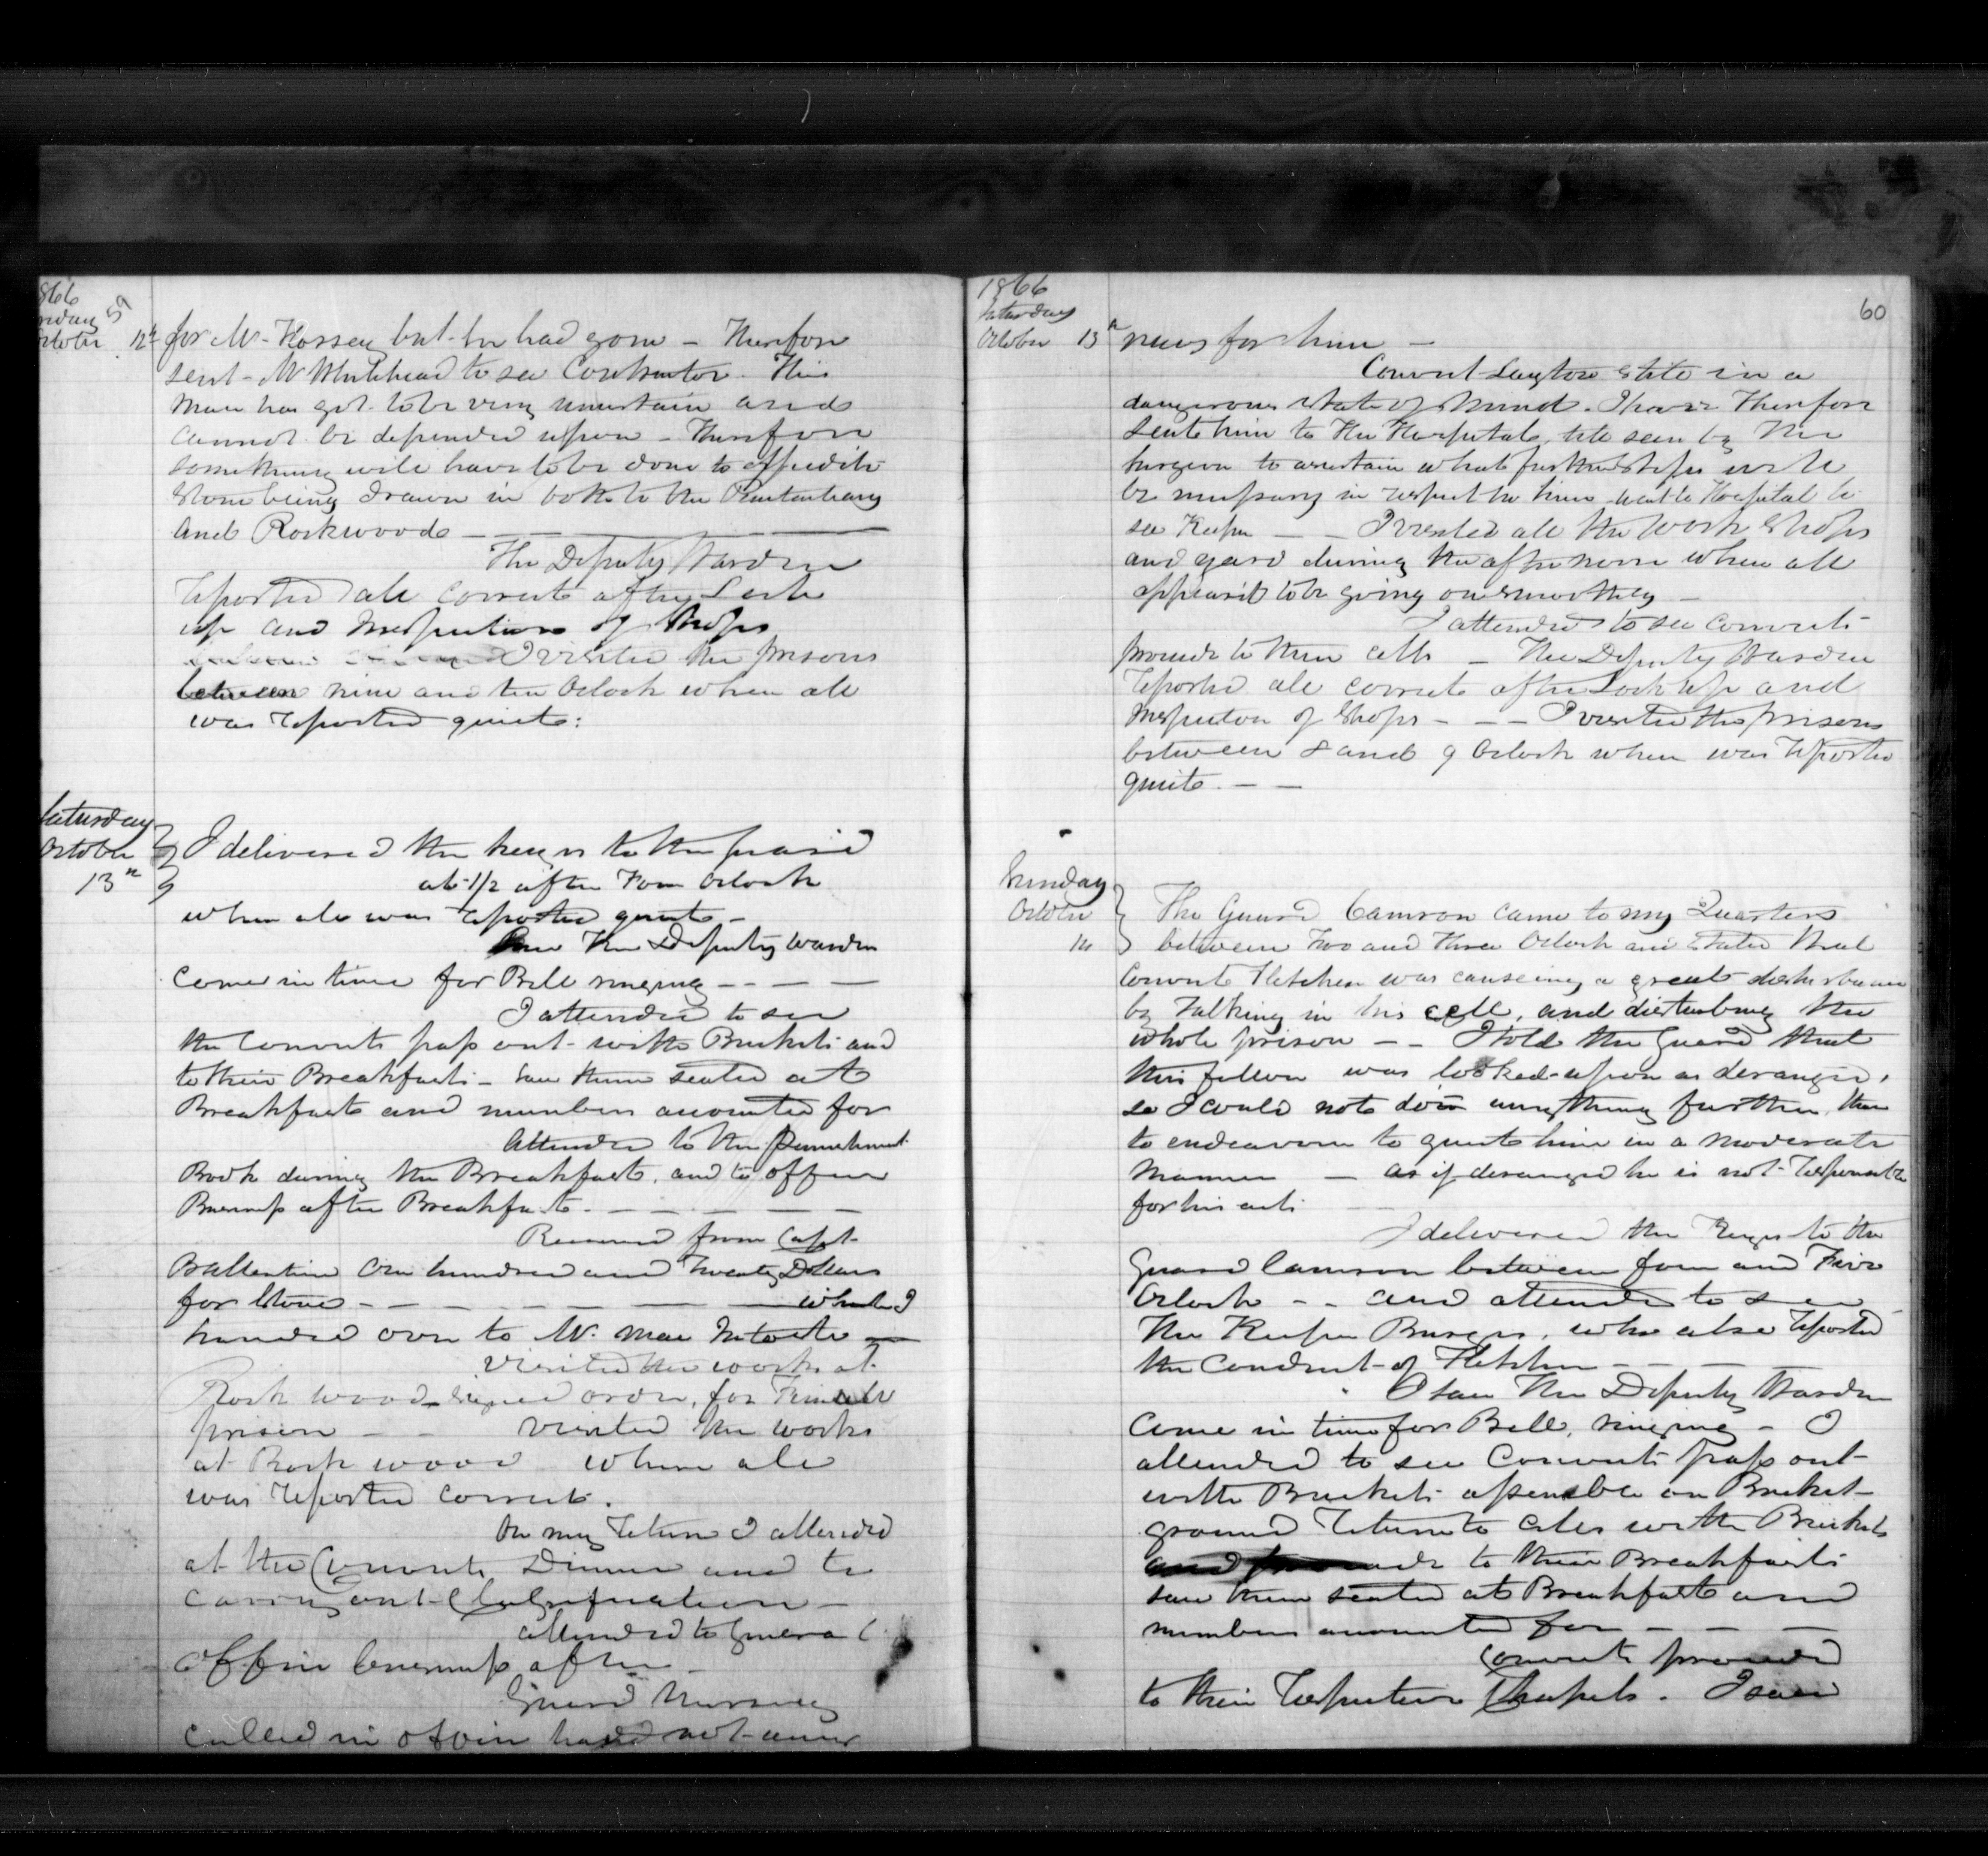 1866
59
October 12th
for Mr Hossey but he had gone – Therefore
sent Mr Whitehead to see Contractor. This
Man has got to be very uncertain and
cannot be depended upon – Therefore
something will have to be done to
Stone being drawn in both to the Penitentiary
and Rockwood –
The Deputy Warden
reported all correct after Lock
up and Inspection of Shops
I visited the prisons
between nine and ten Oclock when all
was reported quiet:
Saturday
October
13th
I delivered the keys to the guard
at 1/2 after Four Oclock
when all was reported quiet –
the Deputy Warden
come in time for Bell ringing – – – –
I attended to see
the Convicts pass out with Buckets and
to their Breakfast – saw them seated at
Breakfast and numbers accounted for
Attended to the Punishment
Book during the Breakfast, and to office
Business after Breakfast. – – – – –
Received from Capt
Ballentine One hundred and Twenty Dollars
for Stone – – – – – – which I
handed over to Mr.
Visited the works at
Rock wood signed order, for
prison – – visited the works
at Rock wood where all
was reported correct.
On my return I attended
at the Convicts Dinner and to
carry out Classification –
attended to General
office business after –
Guard
called in office had not any
1866
Saturday
October 13th
60
news for him –
Convict state in a
dangerous state of Mind. I have Therefore
sent him to the Hospital, to be seen by the
Surgeon to ascertain what further steps will
be necessary in respect to him went to Hospital to
see Keeper – – I visited all the Work Shops
and yard during the afternoon when all
appeared to be going on smoothly –
I attended to see Convicts
proceed to their cells – The Deputy Warden
reported all correct after Lock up and
Inspection of Shops – – – I visited the prisons
between 8 and 9 Oclock when was reported
quiet. – –
Sunday
October
14
The Guard Camron came to my Quarters
between Two and Three Oclock and stated that
Convict Fletcher was causeing a great disturbance
by Talking in his cell, and disturbing the
whole prison – – I told the Guard that
this fellow was looked upon as deranged,
so I could not do anything further, than
to endeavour to quiet him in a moderate
manner – as if deranged he is not responsible
for his acts
I delivered the Keys to the
Guard Camron between four and Five
Oclock – – and attended to see
The Keeper Burgess, who also reported
the Conduct of Fletcher – – –
I saw The Deputy Warden
Come in time for Bell, ringing – I
attended to see Convicts pass out
with Buckets assemble on Bucket
ground return to cells with Buckets
to their Breakfast
saw them seated at Breakfast and
numbers accounted for – – –
Convicts proceed
to their respective Chapels. I saw